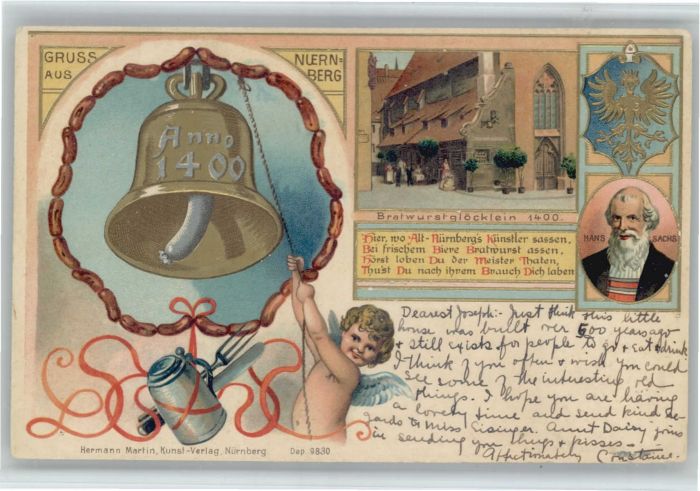 GRUSS
AUS
NUERN-
BERG
Anno
1400
Bratwurstglöcklein 1400.
Hier, wo Alt-Nürnberg's Künstler sassen,
Bei frischem Biere Bratwurst assen,
Hörst loben Du der Meister Thaten,
Thu'st Du nach ihrem Brauch Dich laben
HANS SACHS
Dearest Joseph:- Just think this little
house was built over 500 years ago
& still exists for people to go & eat & drink
I think of you often & wish you could
see some of the interesting old
things. I hope you are having
a lovely time and send kind re-
gards to Miss Eisinger. Aunt Daisy joins
in sending you hugs & kisses -
Affectionately Constance.
Hermann Martin, Kunst-Verlag, Nürnberg Dep. 9830